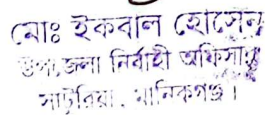 মোঃ ইকবাল হোসেন
উপজেলা নির্বাহী অফিসার
সাটুরিয়া, মানিকগঞ্জ।